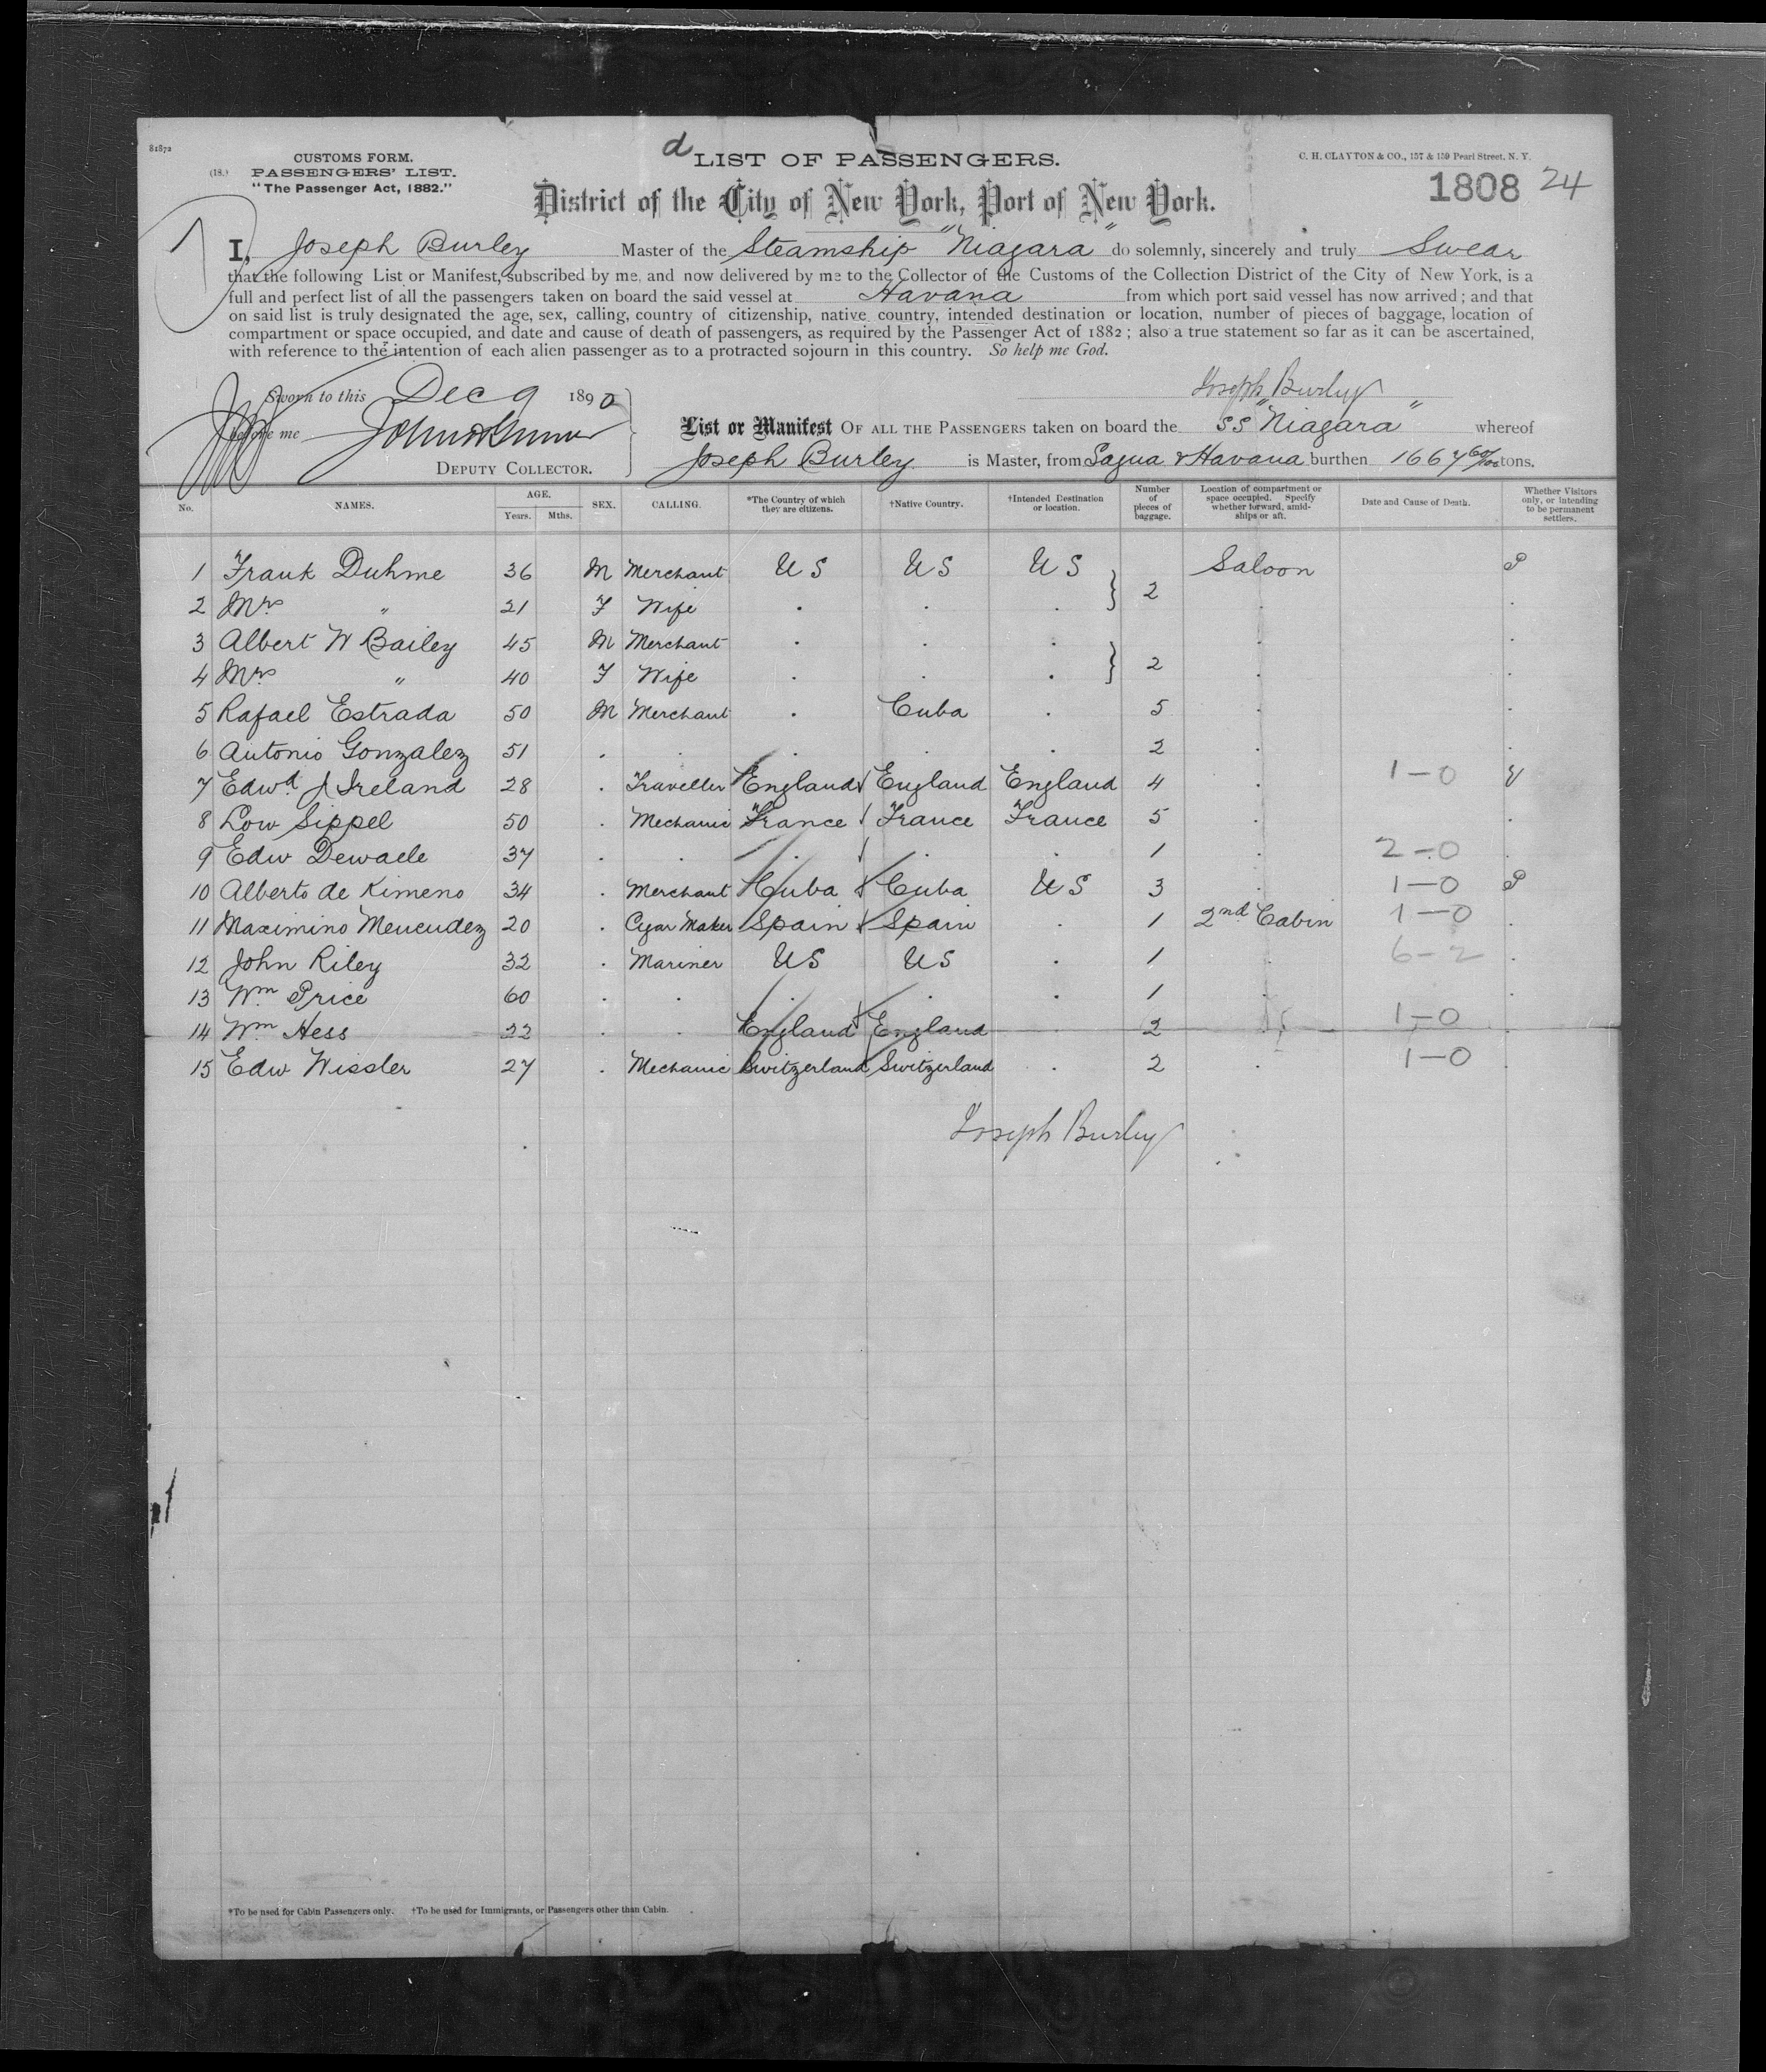 81872
CUSTOMS FORM.
(18.) PASSENGERS' LIST.
"The Passenger Act, 1882."
d
LIST OF PASSENGERS.
C. H. CLAYTON & CO., 157 & 159 Pearl Street, N. Y.
District of the City of New York, Port of New York.
1808 24
I, Joseph Burley Master of the Steamship "Niagara" do solemnly, sincerely and truly Swear
that the following List or Manifest, subscribed by me, and now delivered by me to the Collector of the Customs of the Collection District of the City of New York, is a
full and perfect list of all the passengers taken on board the said vessel at Havana from which port said vessel has now arrived; and that
on said list is truly designated the age, sex, calling, country of citizenship, native country, intended destination or location, number of pieces of baggage, location of
compartment or space occupied, and date and cause of death of passengers, as required by the Passenger Act of 1882; also a true statement so far as it can be ascertained,
with reference to the intention of each alien passenger as to a protracted sojourn in this country. So help me God.
Sworn to this Dec 9 1890
Joseph Burley
before me
DEPUTY COLLECTOR.
List or Manifest OF ALL THE PASSENGERS taken on board the SS "Niagara" whereof
Joseph Burley is Master, from Sagua & Havana burthen 1667 60/100 tons.
No. NAMES. AGE. Years. Mths. SEX. CALLING. *The Country of which they are citizens. †Native Country. †Intended Destination or location. Number of pieces of baggage. Location of compartment or space occupied. Specify whether forward, amidships or aft. Date and Cause of Death. Whether Visitors only, or intending to be permanent settlers.
1 Frank Duhme 36 M Merchant US US US Saloon P
2 Mrs " 21 F Wife . . . } 2 . .
3 Albert W Bailey 45 M Merchant . . . . .
4 Mrs " 40 F Wife . . . } 2 . .
5 Rafael Estrada 50 M Merchant . Cuba . 5 . .
6 Antonio Gonzalez 51 . . . . . 2 . .
7 Edwd J Ireland 28 . Traveller England England England 4 . 1-0 V
8 Low Sippel 50 . Mechanic France France France 5 . .
9 Edw Dewaele 37 . . . . . 1 . 2-0 .
10 Alberto de Kimeno 34 . Merchant Cuba Cuba US 3 . 1-0 P
11 Maximino Menendez 20 . Cigar Maker Spain Spain . 1 2nd Cabin 1-0 .
12 John Riley 32 . Mariner US US . 1 . 6-2 .
13 Wm Price 60 . . . . . 1 . .
14 Wm Hess 22 . . England England . 2 . 1-0 .
15 Edw Wissler 27 . Mechanic Switzerland Switzerland . 2 . 1-0 .
Joseph Burley
*To be used for Cabin Passengers only. †To be used for Immigrants, or Passengers other than Cabin.